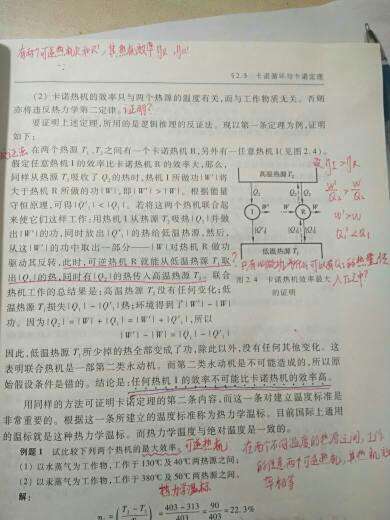 §2.5 卡诺循环与卡诺定理
(2) 卡诺热机的效率只与两个热源的温度有关,而与工作物质无关。否则
亦将违反热力学第二定律。
要证明上述定理,所用的是逻辑推理的反证法。现以第一条定理为例,证明
如下:
在两个热源T₁、T₂之间有一个卡诺热机R,另外有一任意热机I(见图2.4)。
假定任意热机I的效率比卡诺热机R的效率大,那么,
同样从热源T₂吸收了Q₂的热时,热机I所做功|W'|将
大于热机R所做的功|W|,即|W'|>|W|。根据能量
守恒原理,可得|Q'₁|<|Q₁|。若将这两个热机联合起
来使它们这样工作:用热机I从热源T₂吸热|Q₂|并做
出|W'|的功,同时放出|Q'₁|的热给低温热源,然后,
从这|W'|的功中取出一部分——|W|对热机R做功
驱动其反转,此时,可逆热机R就能从低温热源T₁取
出|Q₁|的热,同时有|Q₂|的热传入高温热源T₂。联合
热机工作的总结果是:高温热源T₂没有任何变化;低
温热源T₁损失|Q₁|-|Q'₁|热;环境得到了|W'|-|W|
功。因为|Q₂|=|W|+|Q₁|=|W'|+|Q'₁|,所以
|W'|-|W|=|Q₁|-|Q'₁|
高温热源T₂
Q₂
Q₂
W'
W
I
R
Q'₁
Q₁
低温热源T₁
图2.4 卡诺热机效率最大
的证明
因此,低温热源T₁所少掉的热全部变成了功,除此以外,没有任何其他变化。这
表明联合热机是一部第二类永动机。而第二类永动机是不可能造成的,所以原
始假设条件是错的。结论是:任何热机I的效率不可能比卡诺热机的效率高。
用同样的方法可证明卡诺定理的第二条内容,而这一条对建立温度标准是
非常重要的。根据这一条所建立的温度标准称为热力学温标。目前国际上通用
的温标就是这种热力学温标。而热力学温度与绝对温度是一致的。
例题1 试比较下列两个热机的最大效率。
可逆热机
(1) 以水蒸气为工作物,工作于130℃及40℃两热源之间;
(2) 以汞蒸气为工作物,工作于380℃及50℃两热源之间。
热力学温标
解:
η₁=(T₂-T₁/T₂)=403-313/403=90/403=22.3%